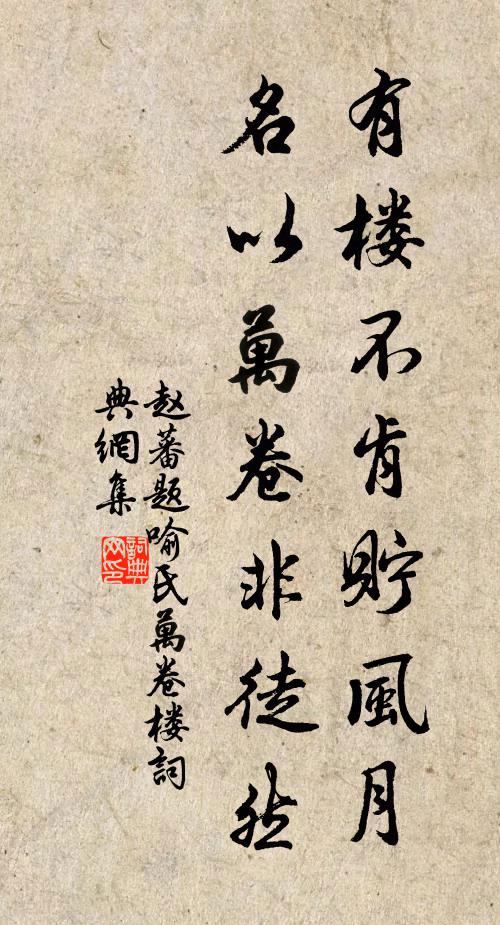 有楼不肯貯風月
名以萬卷非徒然
赵蕃题喻氏萬卷楼詞
典網集
詞典
网印